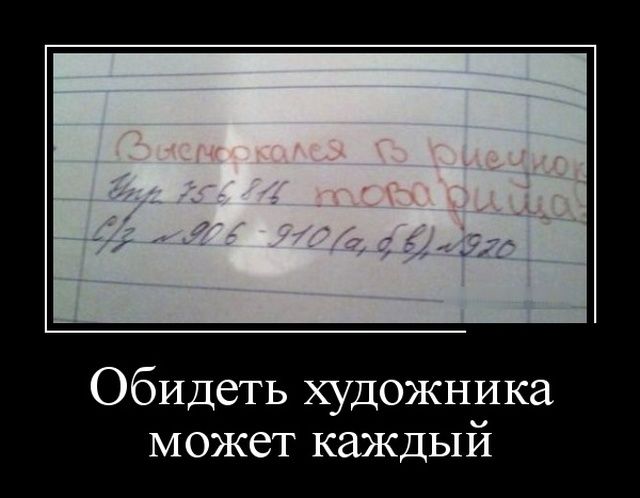 Высморкался в рисунок
Упр 756, 816 товарища
С/з №906-910(а,б,в), №920
Обидеть художника
может каждый